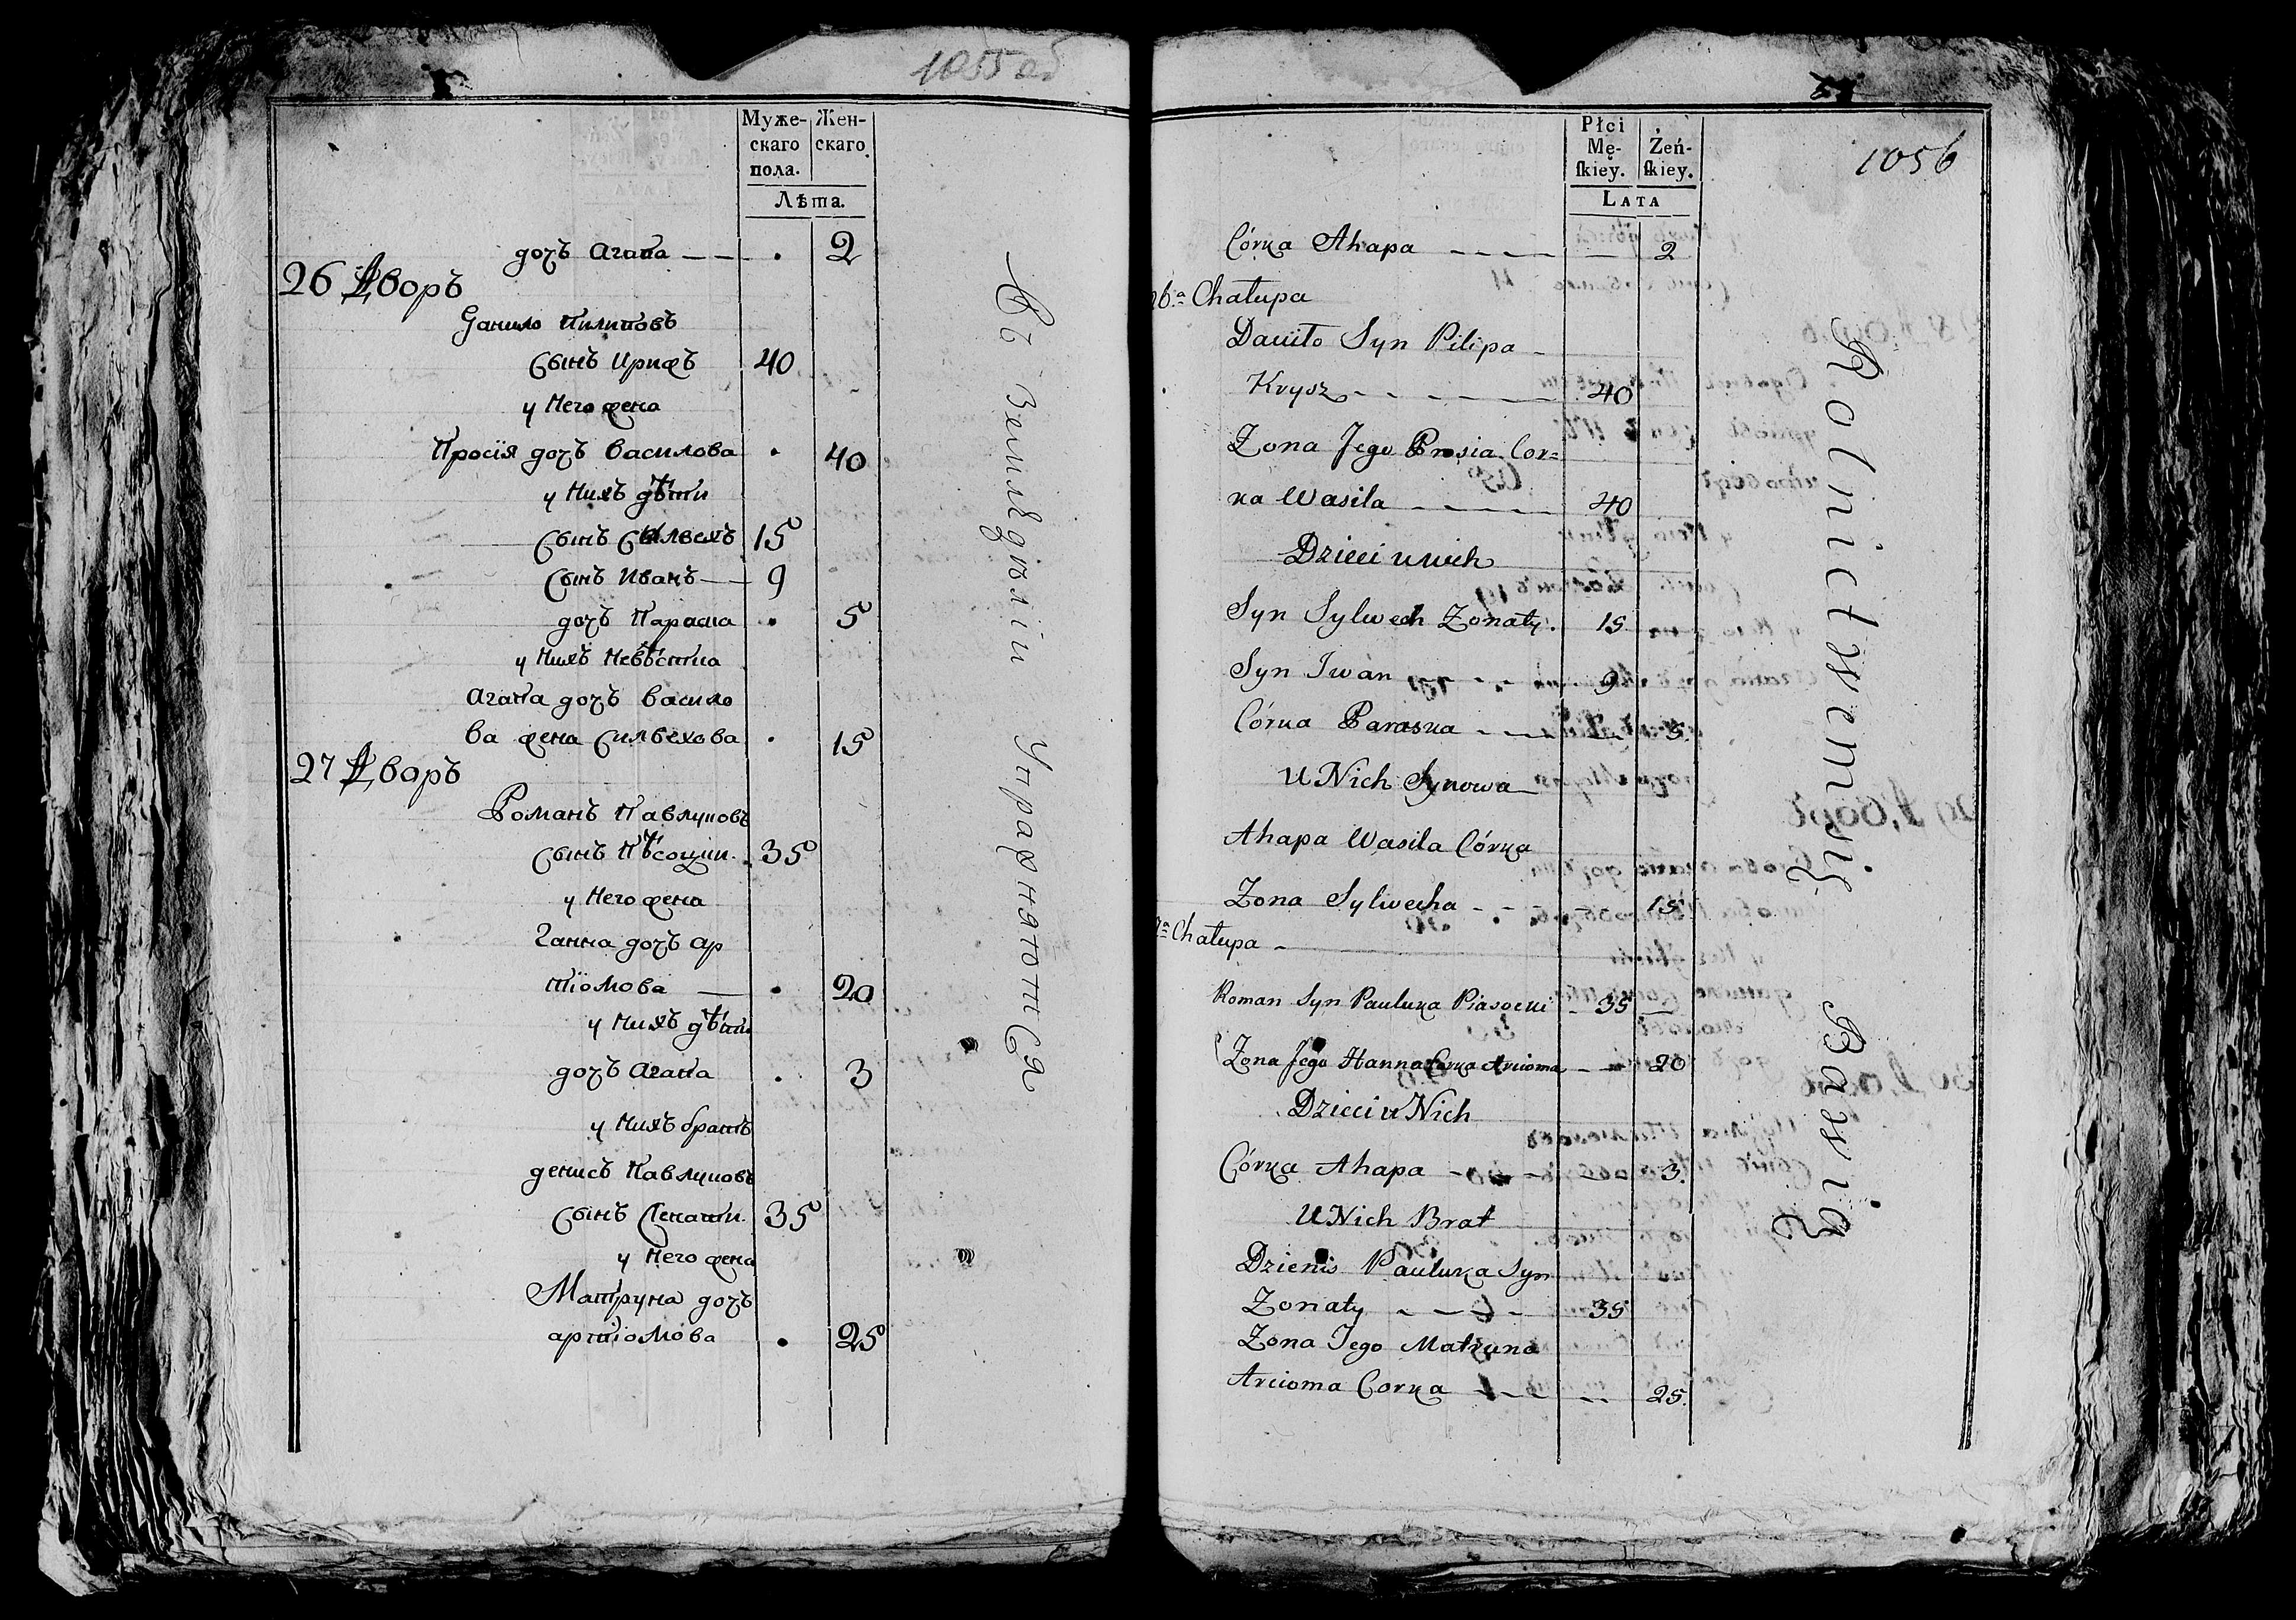 1055 об
Муже-
скаго
пола.
Жен-
скаго
Лѣта.
дочъ Агапа — — . 2
26 Дворъ
Данило Пилиповъ
Сынъ Кришъ 40
у Него жена
Просія дочъ Василова . 40
у Нихъ дѣти
Сынъ Сылвехъ 15
Сынъ Иванъ — 9
дочъ Параска . 5
у Нихъ Невѣстка
Агапа дочъ Васило
ва жена Силвехова . 15
27 Дворъ
Романъ Павлуковъ
Сынъ Пѣсоцки. 35
у Него жена
Ганна дочъ Ар
тіомова — . 20
у Нихъ дѣти
дочъ Агапа . 3
у Нихъ братъ
Денисъ Павлуковъ
Сынъ 35
у Него жена
Матруна дочъ
артіомова . 25
Въ Земледѣліи Упражняются
1056
Płci
Mę-
ſkiey.
Żeń-
ſkiey.
LATA
Córka Ahapa - - - - — 2
26.a Chałupa
Daniło Syn Pilipa -
Krysz - - - - 40
Zona Jego Prosia Cor=
ka Wasila - - - - 40
Dzieci u nich
Syn Sylwech Zonaty. 15
Syn Iwan - - - 9
Córka Paraska - - - 5.
U Nich Synowa
Ahapa Wasila Córka
Zona Sylwecha - - - 15
7a Chałupa -
Roman Syn Pauluka Piasocki - 35 —
Zona Jego Hanna Corka Arcioma - - 20
Dzieci u Nich
Córka Ahapa - - - 3.
U Nich Brat
Dzienis Pauluka Syn
Zonaty - - - - 35
Zona Jego Matruna
Arcioma Corka - - - 25.
Rolnictwem się Bawią